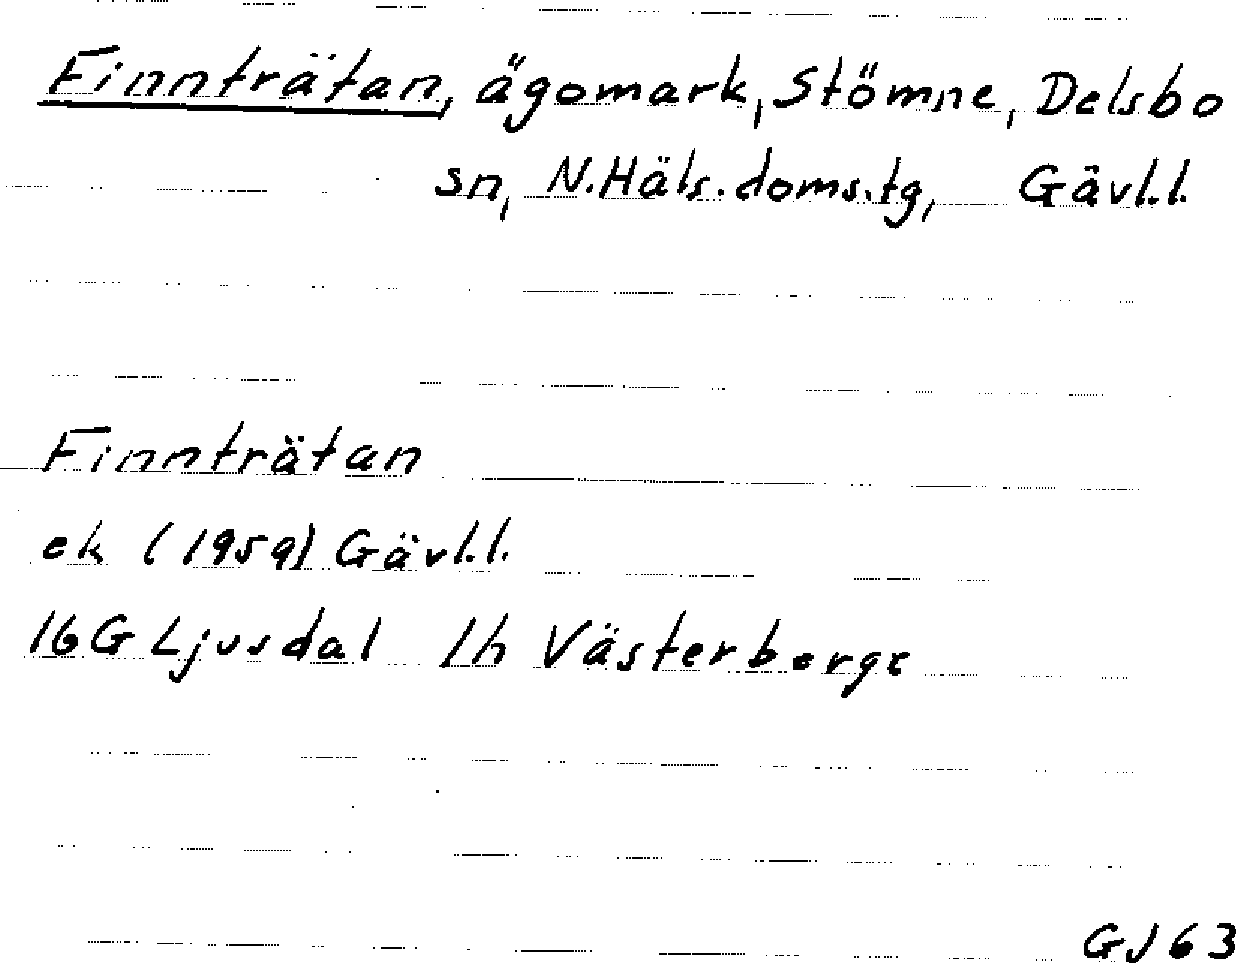 Finnträtan, ägomark, Stömne, Delsbo
sn, N.Häls.doms.tg, Gävl.l.
Finnträtan
ek (1959) Gävl.l.
16G Ljusdal 1h Västerberge
GJ 63